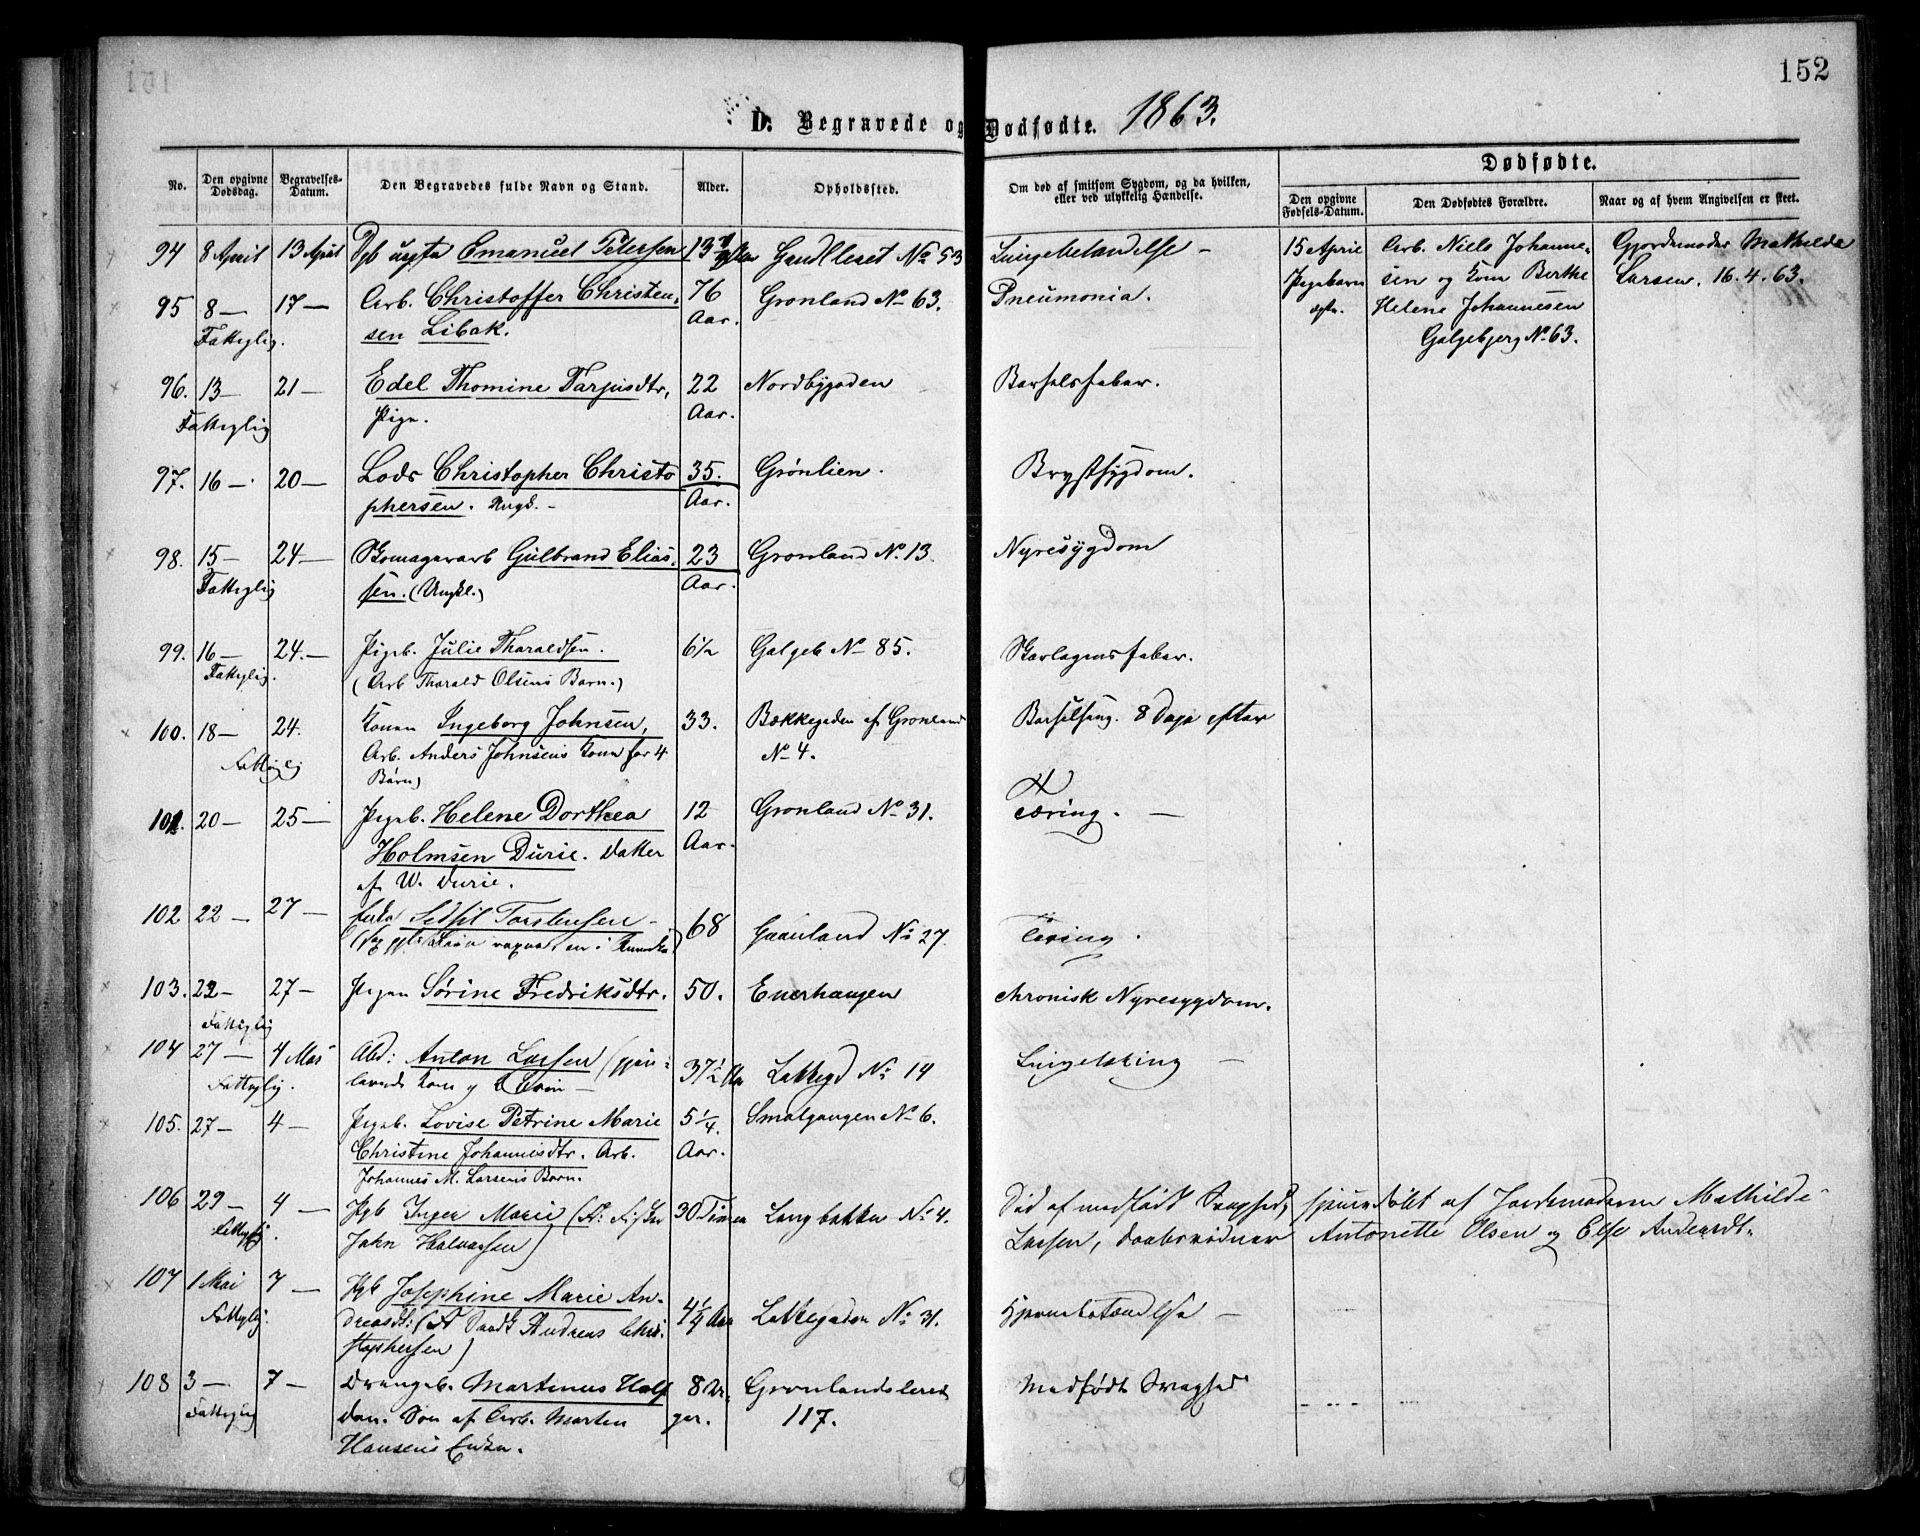 152
D. Begravede og Dødfødte. 1863.
No.
Den opgivne Dødsdag.
Begravelses-Datum.
Den Begravedes fulde Navn og Stand.
Alder.
Opholdssted.
Om død af smitsom Sygdom, og da hvilken, eller ved ulykkelig Hændelse.
Dødfødte.
Den opgivne Fødsels-Datum.
Den Dødfødtes Forældre.
Naar og af hvem Angivelsen er skeet.
94 8 April 13 April Dgb uægte Emanuel Petersen No 53 Lungebetændelse –
15 April Pigebarn ægte. Arb. Niels Johannesen og Kone Berthe Helene Johannesen Galgebjerg No 63. Gjordemoder Mathilde Larsen. 16.4.63.
95 8 — 17 — Arb. Christoffer Christen- 76 Grønland No 63. Pneumonia.
Fattiglig. sen Libak. Aar.
96. 13 — 21 — Edel Thomine Tarjusdtr, 22 Nordbygaden Barselfeber.
Fattiglig Pige. Aar.
97. 16 — 20 — Lods Christopher Christo 35. Grønlien. Brystsygdom.
phersen. Ungk. – Aar.
98. 15 — 24 — Skomagerarb Gulbrand Elias- 23 Grønland No 13. Nyresygdom
Fattiglig sen. (Ungkl.) Aar.
99. 16 — 24. — Pigeb. Julie Tharaldsen. 6½ Galgeb No 85. Skarlagensfeber.
Fattiglig. (Arb Tharald Olsens Barn.)
100. 18 — 24. Konen Ingeborg Johnsen, 33. Bækkegaden af Grønland Barselseng. 8 Dage efter
Fattiglig Arb. Anders Johnsens Kone før 4 No 4.
Børn)
101. 20 — 25 — Pigeb. Helene Dorthea 12 Grønland No 31. Tæring. —
Holmsen Durie. Datter Aar.
af W. Durie.
102 22 — 27 — Enke Sidsil Torstensen – 68 Grønland No 27. Tæring.
103. 22 — 27 — Pigen Sørine Fredriksdtr. 50. Enerhaugen chronisk Nyresygdom.
Fattiglig
104 27 — 4 Mai Arbd: Anton Larsen (gjen- 37½ Aar Lakkegd No 14 —
Fattiglig. levende Kone og Børn —
105. 27 — 4 — Pigeb. Lovise Petrine Marie 5¼ Smalgangen No 6.
Christine Johannesdtr. Arb. Aar.
Johannes M. Larsens Barn.
106 29 — 4 — Pgb Inger Marie (F: Fisker 30 Timer Langbakken No 4. Død af medfødt Svaghed, hjemmedøbt af Jordemoderen Mathilde
Fattiglig. John Halvorsen) Larsen, Daabsvidner Antonette Olsen og Else Andersdt.
107 1 Mai 7 — Pgb Josephine Marie An- 4¼ Aar Lakkegaden No 31. Hjernebetændelse —
Fattiglig. dreasdt: (F Andreas Chri-
stophersen)
108 3 — 7 — Drengeb. Martinus Half 8 Da- Grønlandsleret Medfødt Svaghed
Fattiglig dan. Søn af Arb. Morten ger. 117.
Hansens Enke.